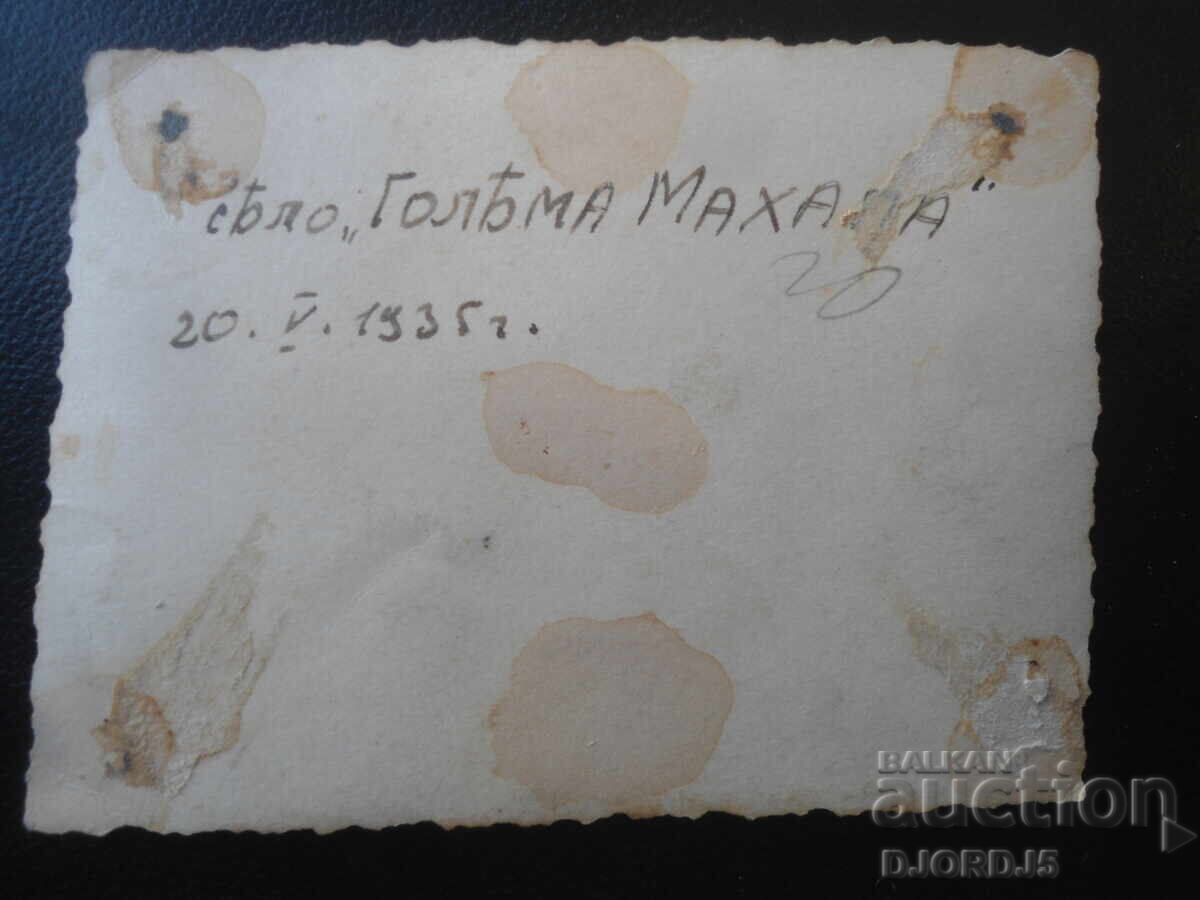 сѣло „ГОЛѢМА МАХАЛА“
20
20. V. 1935 г.
BALKAN
auction
DJORDJ5